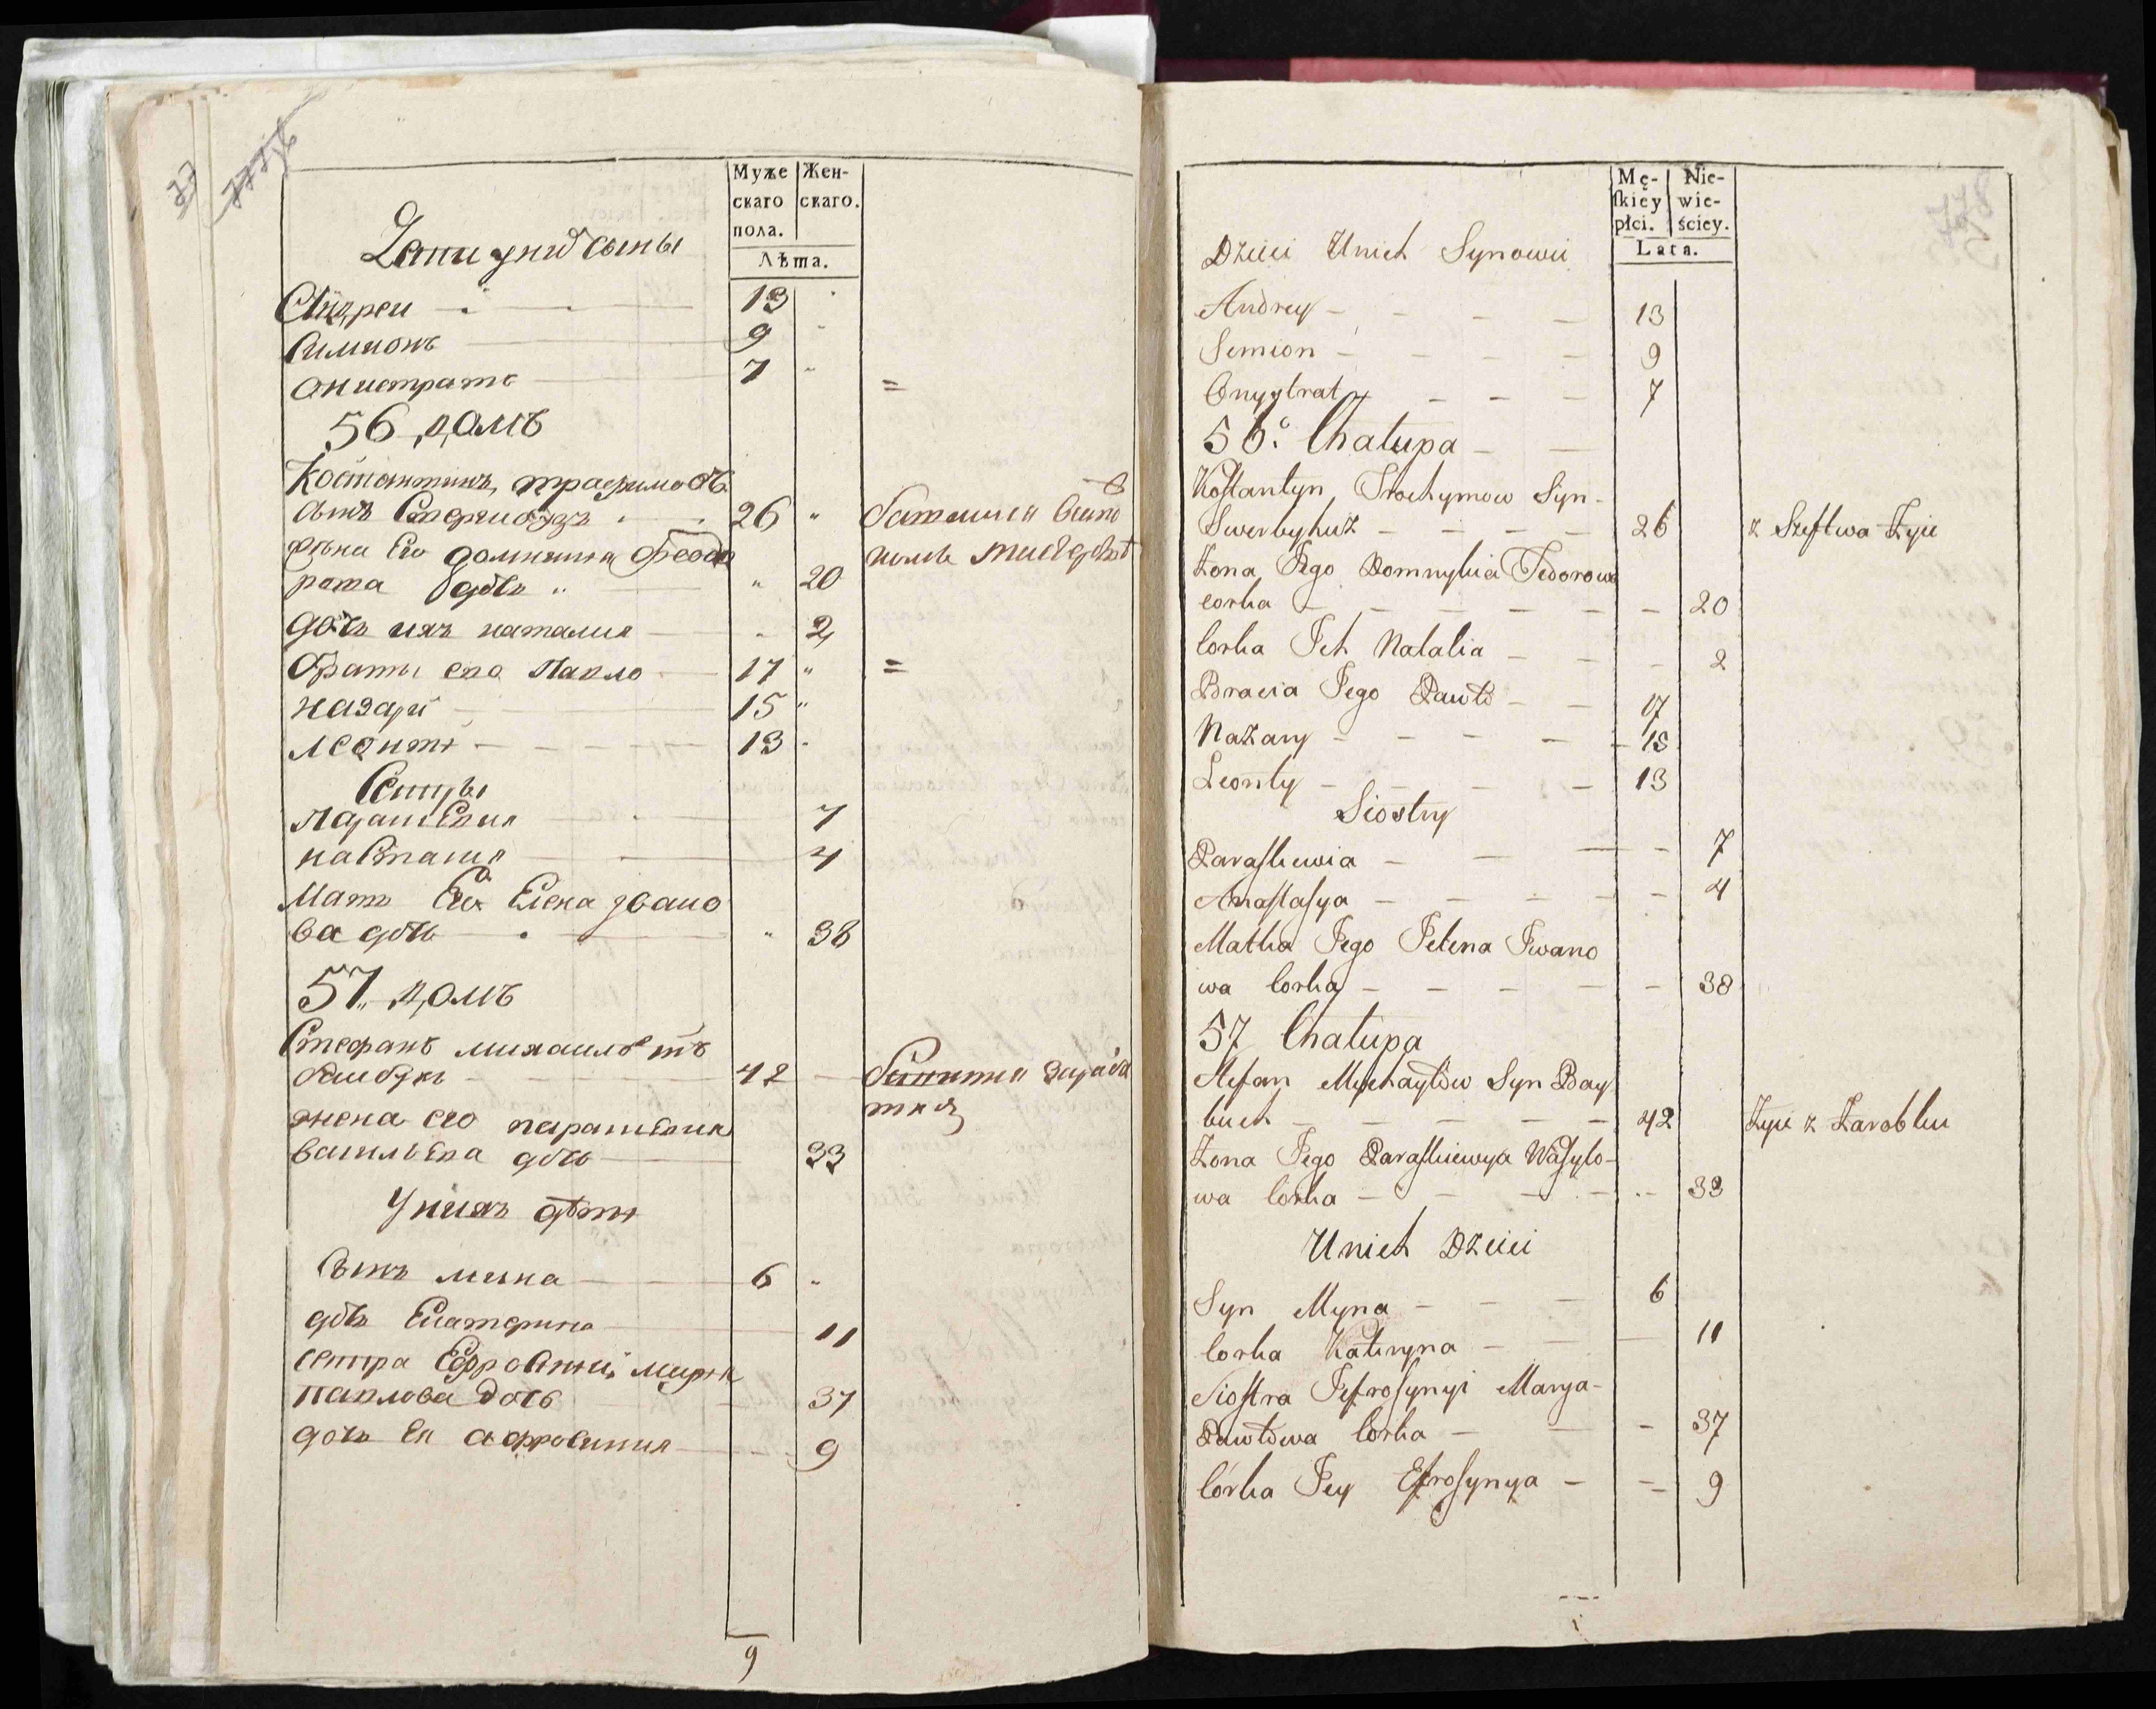 Муже
скаго
пола.
Жен-
скаго.
Лѣта.
Дети у них сыны
Андреи 13
Симионъ 9
Онистратъ 7 =
56 домъ
Костантинъ, трафимовъ
сынъ 26 "
жена Его домникия Феодо
рова дочь " " 20
дочь ихъ наталия 2
Браты его Павло 17 " =
назари 15 "
леонти 13
Сестры
парашкевия 7
настасия 4
Мать Его Елена Ивано
ва дочь " 38
57 домъ
Стефанъ михаиловъ
42
жена его парашкевия
василева дочь 33
У нихъ дети
Сынъ мина 6
дочь Екатерина 11
сестра
павлова дочь 37
дочь Ея афросиния 9
9
Mę-
ſkiey
płci.
Nie-
wie-
ściey.
Lata.
Dzieci Unich Synowii
Andrey 13
Semion 9
Onystrat 7
56. Chałupa
Kostantyn Trochymow Syn
Swerbyhuz 26 z Szeftwa Żyie
Żona Jego Domnykia Fedorowa
corka 20
Corka Jch Natalia 2
Bracia Jego Pawło 17
Nazary 15
Leonty 13
Siostry
Paraſkiewia 7
Anaſtaſya 4
Matka Jego Jelena Jwano
wa Corka 38
57 Chałupa
Stefan Mychayłow Syn Bay
buch 42 Żyie z Zarobku
Żona Jego Paraſkiewya Waſylo-
wa Corka 33
Unich Dzieci
Syn Myna 6
Corka Kateryna 11
Siostra Jefroſynyi Marya
Pawłowa Corka 37
Córka Jey Efroſynya 9